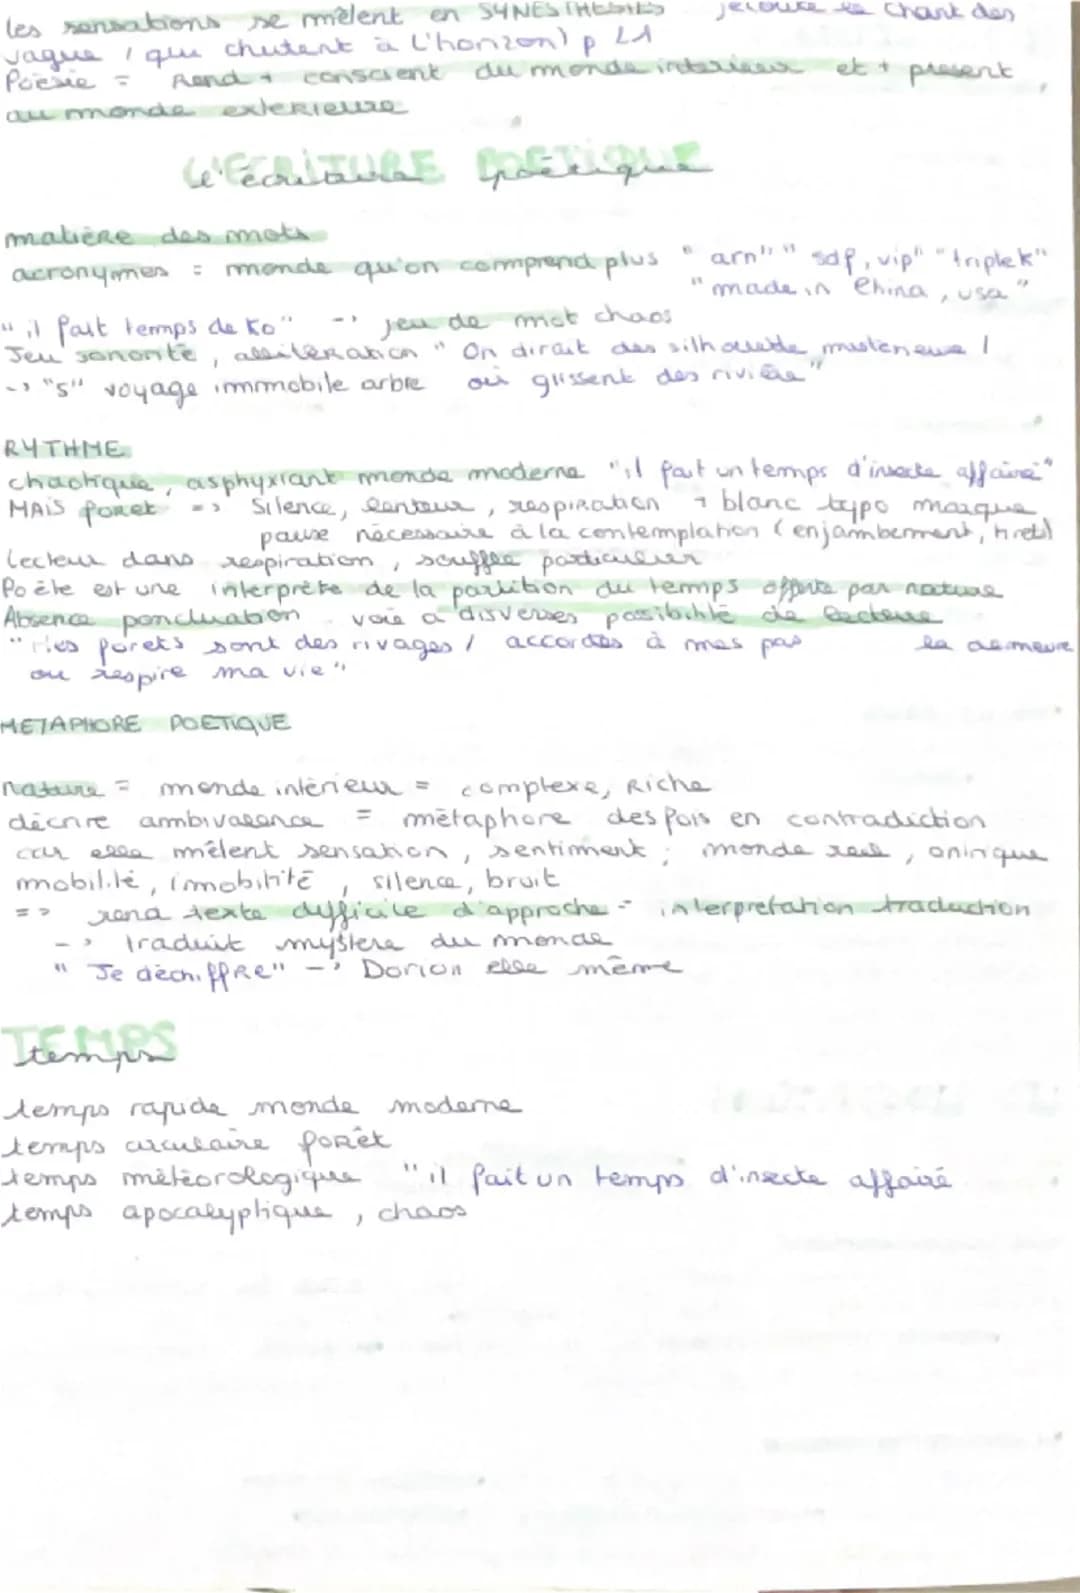 les sensations se mêlent en SYNESTHESIES j'ecoute le chant des
vague / qui chutent à l'horizon) p 21
Poèsie = Rend + conscient du monde interieur et + present
au monde exterieure
L'ECRITURE POETIQUE
l'écriture poètique
matière des mots
acronymes = monde qu'on comprend plus "arn" "sdf, vip" "triplek"
"made in China, usa"
"il fait temps de Ko" -> jeu de mot chaos
Jeu sonorité, allitération "On dirait des silhouette misterieuse /
-> "s" voyage immobile arbre où glissent des rivière"
RYTHME
chaotique, asphyxiant monde moderne "il fait un temps d'insecte affairé"
MAIS foret => Silence, lenteur, respiration → blanc typo marque
pause nécessaire à la contemplation (enjambement, tiret)
Lecteur dans respiration, souffle particulier
Poète est une interprète de la partition du temps offerte par nature
Absence ponctuation voie a disverses possibilité de lecteure
"mes forets sont des rivages / accordés à mes pas la demeure
ou respire ma vie"
METAPHORE POETIQUE
nature = monde intérieur = complexe, Riche
décrire ambivalence = métaphore des fois en contradiction
car elle mêlent sensation, sentiment, monde reel, onirique
mobilité, imobilité, silence, bruit
=> rend texte difficile d'approche = interpretation traduction
-> traduit mystere du monde
"Je déchiffre" -> Dorion elle même
TEMPS
temps
temps rapide monde moderne
temps circulaire forêt
temps météorologique "il fait un temps d'insecte affairé
temps apocalyptique, chaos